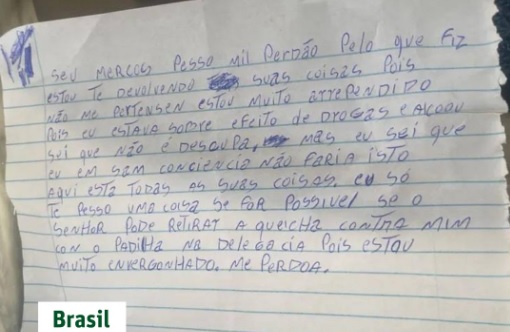 Seu MERCOS PESSO MIL PERDÃO PELO QUE FIZ
ESTOU TE DEVOLVENDO SUAS COISAS POIS
NÃO ME PERTENSEN ESTOU MUITO ARREPENDIDO
POIS EU ESTAVA SOBRE EFEITO DE DROGAS E ALCOOU
SEI QUE NÃO É DESCUPA, MAS EU SEI QUE
EU EM SAM CONCIENCIA NÃO FARIA ISTO
AQUI ESTA TODAS AS SUAS COISAS. EU SÓ
TE PESSO UMA COISA SE FOR POSSIVEL SE O
SENHOR PODE RETIRAR A QUEICHA CONTRA MIM
CON O PADILHA NA DELEGACIA POIS ESTOU
MUITO ENVERGONHADO. ME PERDOA.
Brasil